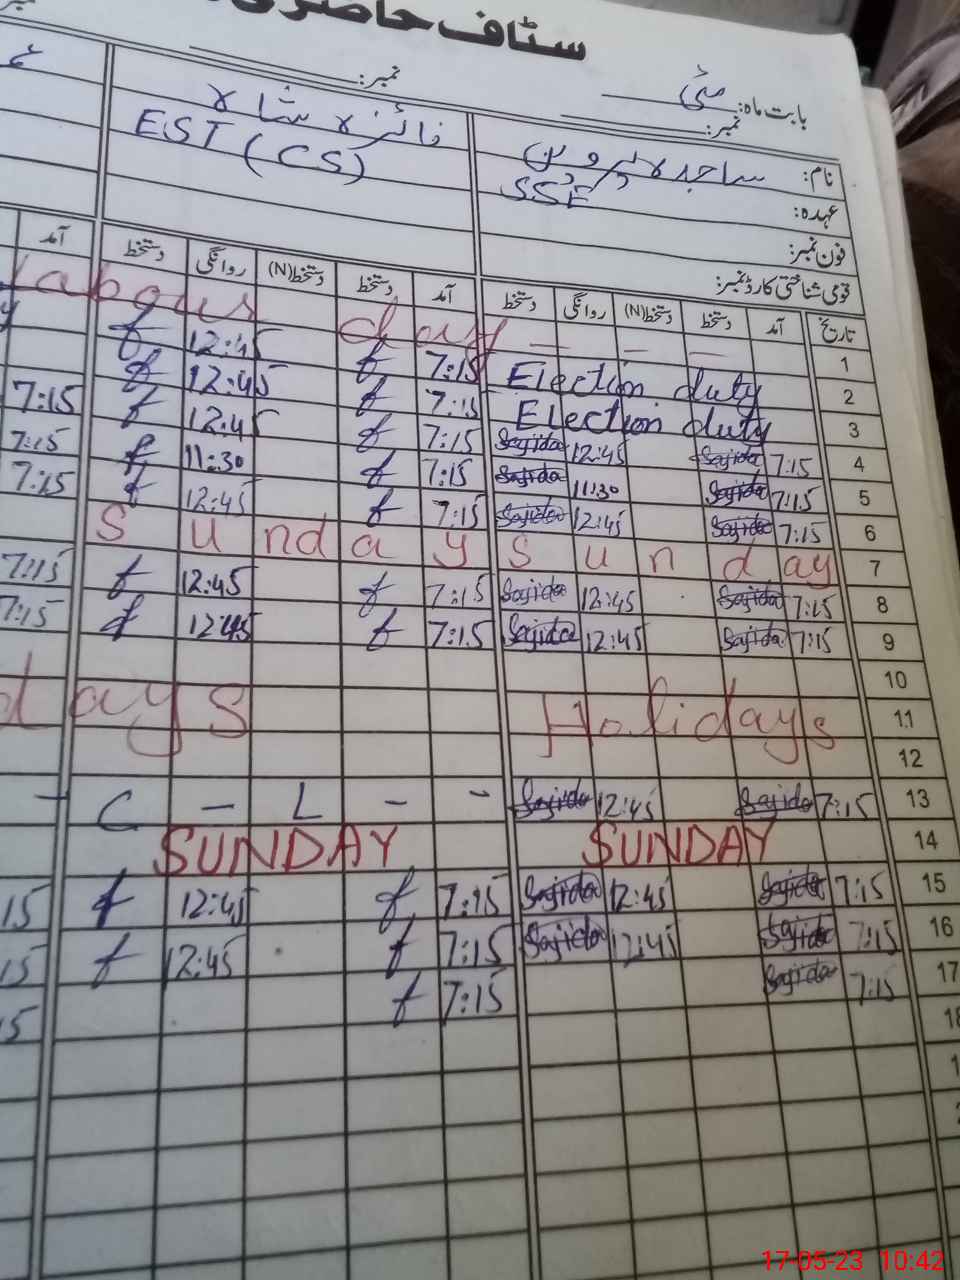 سٹاف حاضری
بابت ماہ: مئی
نمبر:
نمبر:
نام: ساجدہ پروین
فائزہ شاہ
عہدہ: SSE
EST (CS)
فون نمبر:
قومی شناختی کارڈ نمبر:
تاریخ آمد دستخط دستخط(N) روانگی دستخط آمد دستخط دستخط(N) روانگی دستخط آمد
labour day — — — 1
f 12:45 f 7:15 Election duty 2
7:15 f 12:45 f 7:15 Election duty 3
7:15 f 12:45 f 7:15 Sajida 12:45 Sajida 7:15 4
7:15 f 11:30 f 7:15 Sajida 11:30 Sajida 7:15 5
f 12:45 f 7:15 Sajida 12:45 Sajida 7:15 6
Sunday Sunday 7
7:15 f 12:45 f 7:15 Sajida 12:45 Sajida 7:15 8
7:15 f 12:45 f 7:15 Sajida 12:45 Sajida 7:15 9
10
days Holidays 11
12
– C – L – – Sajida 12:45 Sajida 7:15 13
SUNDAY SUNDAY 14
15 f 12:45 f 7:15 Sajida 12:45 Sajida 7:15 15
15 f 12:45 f 7:15 Sajida 12:45 Sajida 7:15 16
15 f 7:15 Sajida 7:15 17
18
17-05-23 10:42